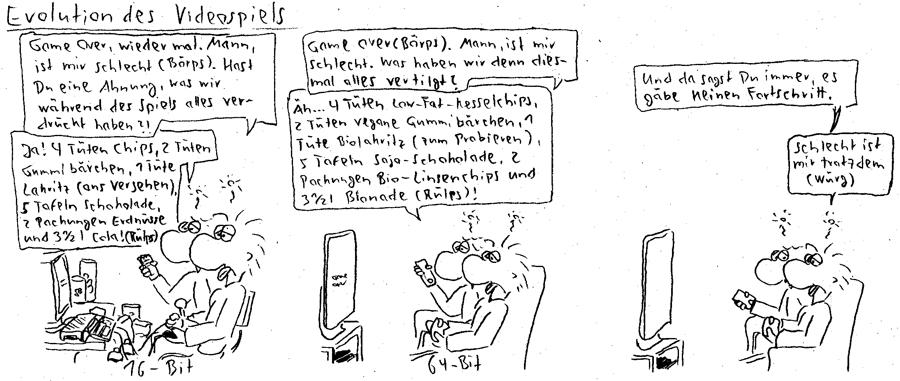 Evolution des Videospiels
Game Over, wieder mal. Mann,
ist mir schlecht (Börps). Hast
Du eine Ahnung, was wir
während des Spiels alles ver-
drückt haben?!
Ja! 4 Tüten Chips, 2 Tüten
Gummibärchen, 1 Tüte
Lakritz (aus Versehen),
5 Tafeln Schokolade,
2 Packungen Erdnüsse
und 3½ l Cola! (Rülps)
16-Bit
Game over (Börps). Mann, ist mir
schlecht. Was haben wir denn dies-
mal alles vertilgt?
Äh... 4 Tüten Low-Fat-Kesselchips,
2 Tüten vegane Gummibärchen, 1
Tüte Biolakritz (zum Probieren),
5 Tafeln Soja-Schokolade, 2
Packungen Bio-Linsenchips und
3½ l Bionade (Rülps)!
GAME
OVER
64-Bit
Und da sagst Du immer, es
gäbe keinen Fortschritt.
Schlecht ist
mir trotzdem
(Würg)